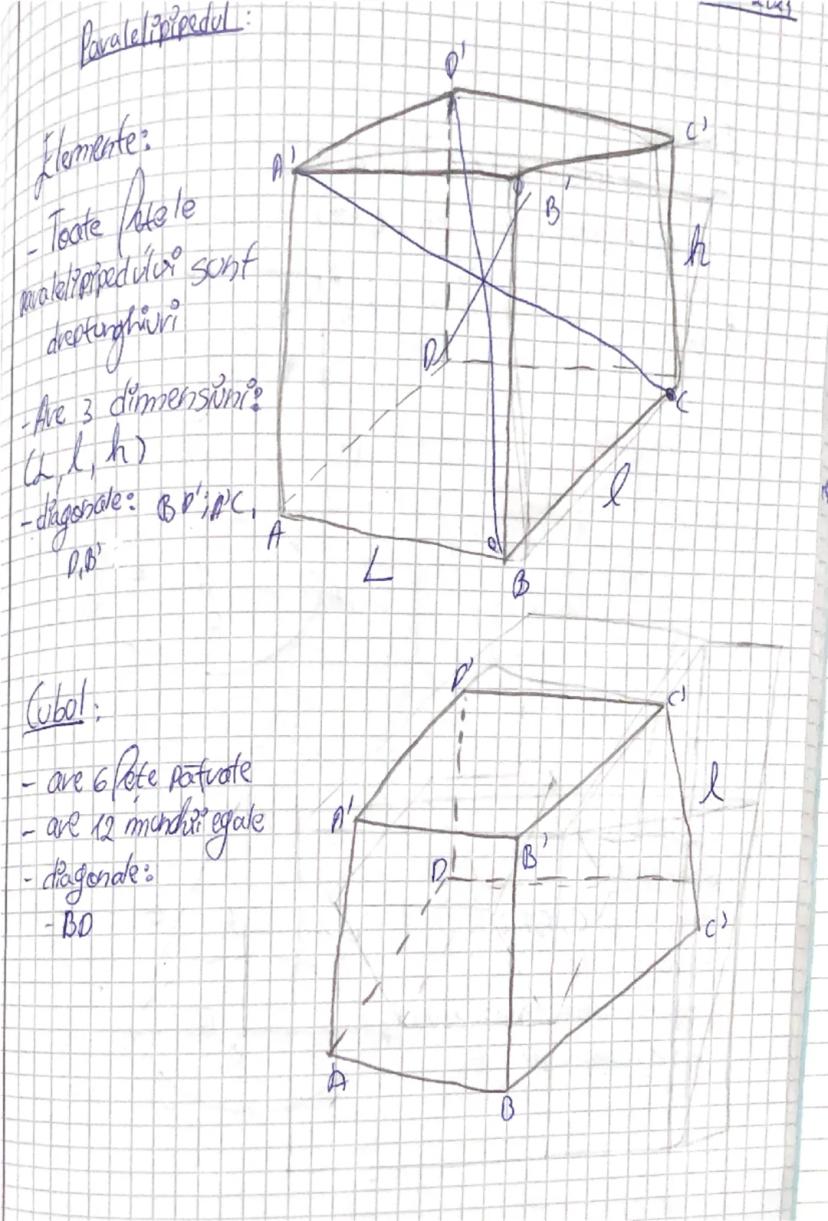 Paralelipipedul:
Elemente:
- Toate fețele
paralelipipedului sunt
dreptunghiuri
- Are 3 dimensiuni:
(L, l, h)
- diagonale: BD'; A'C,
D,B'
D'
C'
A'
B'
h
D
C
l
A
L
B
Cubul:
- are 6 fețe pătrate
- are 12 muchii egale
- diagonale:
- BD
D'
C'
l
A'
B'
D
C'
A
B